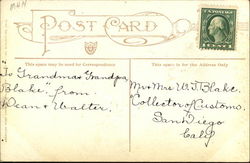 MHN
POST CARD
This space may be used for Correspondence
This space is for the Address Only
"To Grandma & Grandpa
Blake", from
Dean & Walter.
Mr & Mrs W. J. Blake.
Collector of Customs,
San Diego
Calif